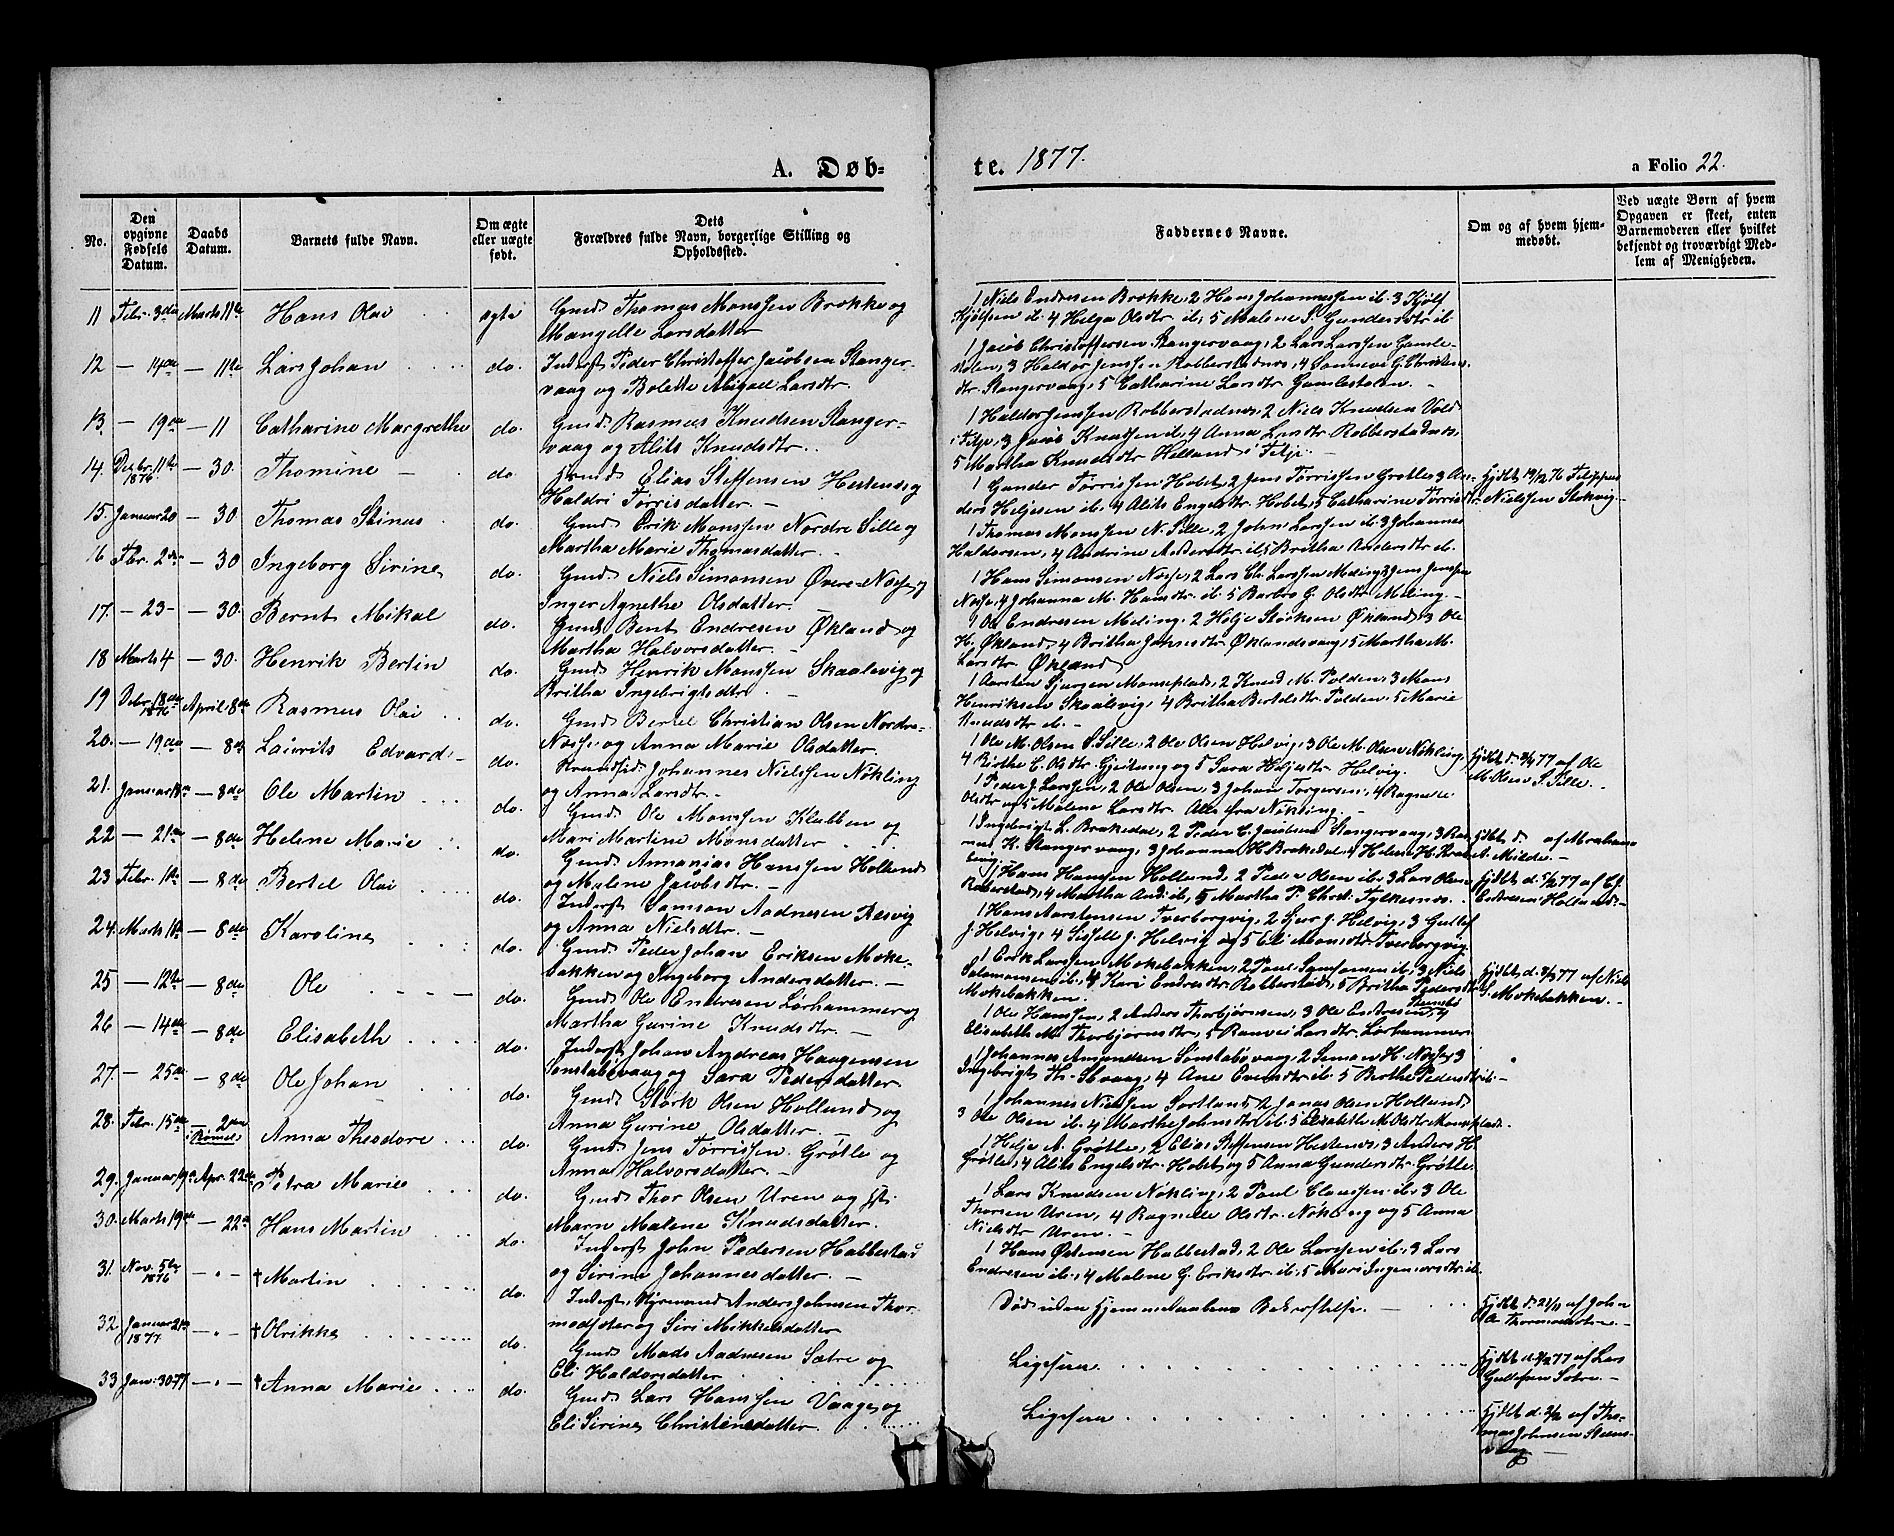 A. Døb-
te. 1877.
a Folio 22.
No.
Den opgivne Fødsels Datum.
Daabs Datum.
Barnets fulde Navn.
Om ægte eller uægte født.
Dets Forældres fulde Navn, borgerlige Stilling og Opholdssted.
Faddernes Navne.
Om og af hvem hjemmedøbt.
Ved uægte Børn af hvem Opgaven er skeet, enten Barnemoderen eller hvilket bekjendt og troværdigt Medlem af Menigheden.
11 Febr. 3die Marts 11te Hans Olai ægte Gmd. Thomas Monssen Brække og
Mangelle Larsdatter
1 Niels Endresen Brække, 2 Hans Johannessen ib. 3 Kjølf
Kjølfsen ib. 4 Helga Olsdtr ib. 5 Malene S. Gundersdtr ib
12 — 14de — 11te Lars Johan do. Inderst Peder Christoffer Jacobsen Stanger-
vaag og Bolette Abigael Larsdtr.
1 Jacob Christoffersen Stangervaag, 2 Lars Larssen Gamle-
stølen, 3 Haldor Jenssen Robberstadnes, 4 Sønneve G. Christens
dtr. Stangervaag, 5 Catharine Larsdtr Gamlestølen.
13. — 19de — 11 Catharine Margrethe do. Gmd. Rasmus Knudsen Stanger-
vaag og Alits Knudsdtr.
1 Haldor Jenssen Robberstadnes, 2 Niels Knudsen Vold
i Fitje, 3 Jacob Knudsen ib, 4 Anna Larsdtr Robberstadnes,
5 Martha Knudsdtr Helland i Fitje.
14. Dezbr. 11te 1876 — 30. Thomine do Gmd. Elias Steffensen Hestenes og
Haldri Tørrisdatter.
1 Gunder Tørrissen Habet, 2 Jens Tørrissen Grøtle, 3 An-
ders Heljesen ib, 4 Alits Engelsdtr. Habet, 5 Catharine Tørrisdtr
Hjdbt 19/12 76 Filippus
Nielssen Stokvig.
15. Januar 20 — 30 Thomas Stinus do. Gmd. Erik Monssen Nordre Sille og
Martha Marie Thomasdatter.
1 Thomas Monssen N. Sille, 2 John Larssen ib. 3 Johannes
Haldorsen, 4 Andrine Andersdtr ib, 5 Britha Andersdtr ib.
16 Fbr. 2den — 30 Ingeborg Sirine do. Gmd. Niels Simonsen Øvre-Nosse og
Inger Agnethe Olsdatter.
1 Hans Simonsen Nosse, 2 Lars Ch. Larssen Meling, 3 Jens Jenssen
Nosse, 4 Johanna M. Hansdtr. ib. 5 Barbro G. Olsdtr Meling.
17. — 23 — 30. Bernt Mikal do. Gmd. Bent Endresen Økland og
Martha Halvorsdatter.
1 Ole Endresen Meling, 2 Helje Størksen Økland, 3 Ole
H. Økland, 4 Britha Johnsdtr. Øklandsvaag, 5 Martha M.
Larsdtr. Økland
18 Marts 4 — 30. Henrik Bertin do. Gmd. Henrik Monssen Skaalevig og
Britha Ingebrigtsdtr.
1 Aarsten Sjursen Monseplads, 2 Knud M. Tolden, 3 Mons
Henriksen Skaalevig, 4 Britha Bertelsdtr. Tolden, 5 Marie
Knudsdtr ib.
19 Dzbr. 18de 1876 April 8de Rasmus Olai do. Gmd. Bertel Christian Olsen Nordre-
Nosse og Anna Marie Olsdatter.
1 Ole M. Olsen S. Sille, 2 Ole Olsen Helvig, 3 Ole M. Olsen Nøkling,
4 Birthe C. Olsdtr. Gjeitung og 5 Sara Heljesdtr. Helvig.
Hjdbt d. 3/1 77 af Ole
M. Olsen S. Sille.
20. — 19de — 8de Laurits Edvard do. Strandsid. Johannes Nielssen Nøkling
og Anna Larsdtr.
1 Peder J. Larssen, 2 Ole Olsen, 3 Johan Torgersen, 4 Ragnele
Olsdtr og 5 Malene Larsdtr. Alle fra Nøkling.
21. Januar 18de — 8de Ole Martin do. Gmd. Ole Monssen Klubben og
Mari Martine Monsdatter
1 Ingebrigt L. Brakedal, 2 Peder C. Jacobsen Stangervaag, 3 Ras-
mus K. Stangervaag, 3 Johanna H. Brakedal,
Hjdbt d. af Abraham
A. Milde.
22 — 21de — 8de Helene Marie do. Gmd. Annanias Hanssen Hollund
og Malene Jacobsdtr.
1 Hans Hansen Hollund, 2 Peder Olsen ib. 3 Lars Olsen
Roberstad, 4 Martha And. ib, 5 Martha P. Christ. Fylkesnes.
Hjdbt d. 5/2 77 af Ej.
Endresen Hollund.
23 Febr. 10de — 8de Bertel Olai do. Inderst Samson Aadnesen Resvig
og Anna Nielsdtr.
1 Hans Aarstensen Tverborgvig, 2 Sjur J. Helvig, 3 Gullef
J. Helvig, 4 Siselle J. Helvig og 5 Eli Monsdtr Tverborgvig.
24. Marts 10de — 8de Karoline do. Gmd. Peder Johan Eriksen Moke-
bakken og Ingeborg Andersdatter.
1 Erik Larssen Mokebakken, 2 Poul Samsonsen ib., 3 Niels
Salamonsen ib., 4 Kari Endresdtr. Robberstad, 5 Britha Pedersdtr
Mokebakken.
Hjdbt d. 3/3 77 af Niels
S. Mokebakken.
25 — 12te — 8de Ole do. Gmd. Ole Endresen Lørhammer og
Martha Gurine Knudsdtr.
1 Ole Hanssen, 2 Anders Thorbjørnsen, 3 Ole Endresen
Elisabeth M. Thorbjørnsdtr., 5 Ranvei Larsdtr. Lørhammer
26 — 14de — 8de Elisabeth do. Inderst Johan Andreas Haagensen
Sønstabøvaag og Sara Pedersdatter
1 Johannes Amundsen Sønstabøvaag, 2 Simon H. Nosse, 3
Ingebrigt H. Stbvaag, 4 Ane Evensdtr ib. 5 Berthe Pedersdtr ib.
27. — 25de — 8de Ole Johan do. Gmd. Størk Olsen Hollund og
Anna Gurine Olsdatter.
1 Johannes Nielssen Sortland, 2 Jonas Olsen Hollund,
3 Ole Olsen ib. 4 Marthe Johnsdtr ib. 5 Elisabethe M. Olsdtr Monseplads.
28. Febr. 15de — 2den i Bømel Anna Theodore do. Gmd. Jens Tørrissen Grøtle og
Anna Halvorsdatter.
1 Helje A. Grøtle, 2 Elias Steffensen Hestenes, 3 Anders H.
Grøtle, 4 Alits Engelsdtr. Habet og 5 Anna Gundersdtr. Grøtle.
29. Januar 19de Apr. 22de Petra Marie do. Gmd. Thor Olsen Uren og
Marn Malene Knudsdatter.
1 Lars Knudsen Nøkling, 2 Poul Claussen ib., 3 Ole
Thorsen Uren, 4 Ragnele Olsdtr. Nøkling og 5 Anna
Nielsdtr Uren.
30. Marts 19de — 22de Hans Martin do. Inderst John Pedersen Habbestad
og Sirine Johannesdatter.
1 Hans Østensen Habbestad, 2 Ole Larssen ib., 3 Lars
Endresen ib., 4 Malene G. Eriksdtr. ib. 5 Mari Ingemorsdtr ib.
31. Nov. 5te 1876 — " — † Martin do. Inderst, Styrmand Anders Johnsen Thor-
modsæter og Siri Mikkelsdatter
Død uden Hjemmedaabens Bekræftelse.
Hjdbt d. 21/11 af John
A. Thormodsæter.
32 Januar 21de 1877 — " — † Olrikke do. Gmd. Mads Aadnesen Sætre og
Eli Haldorsdatter
Ligesaa
Hjdbt d. 3/2 77 af Lars
Gullefsen Sætre.
33 Janv. 30 77 — " — † Anna Marie do. Gmd. Lars Hanssen Vaage og
Eli Sirine Christensdatter
Ligesaa
Hjdbt d. 2/2 af Tho-
mas Johnsen Steens-
vaag